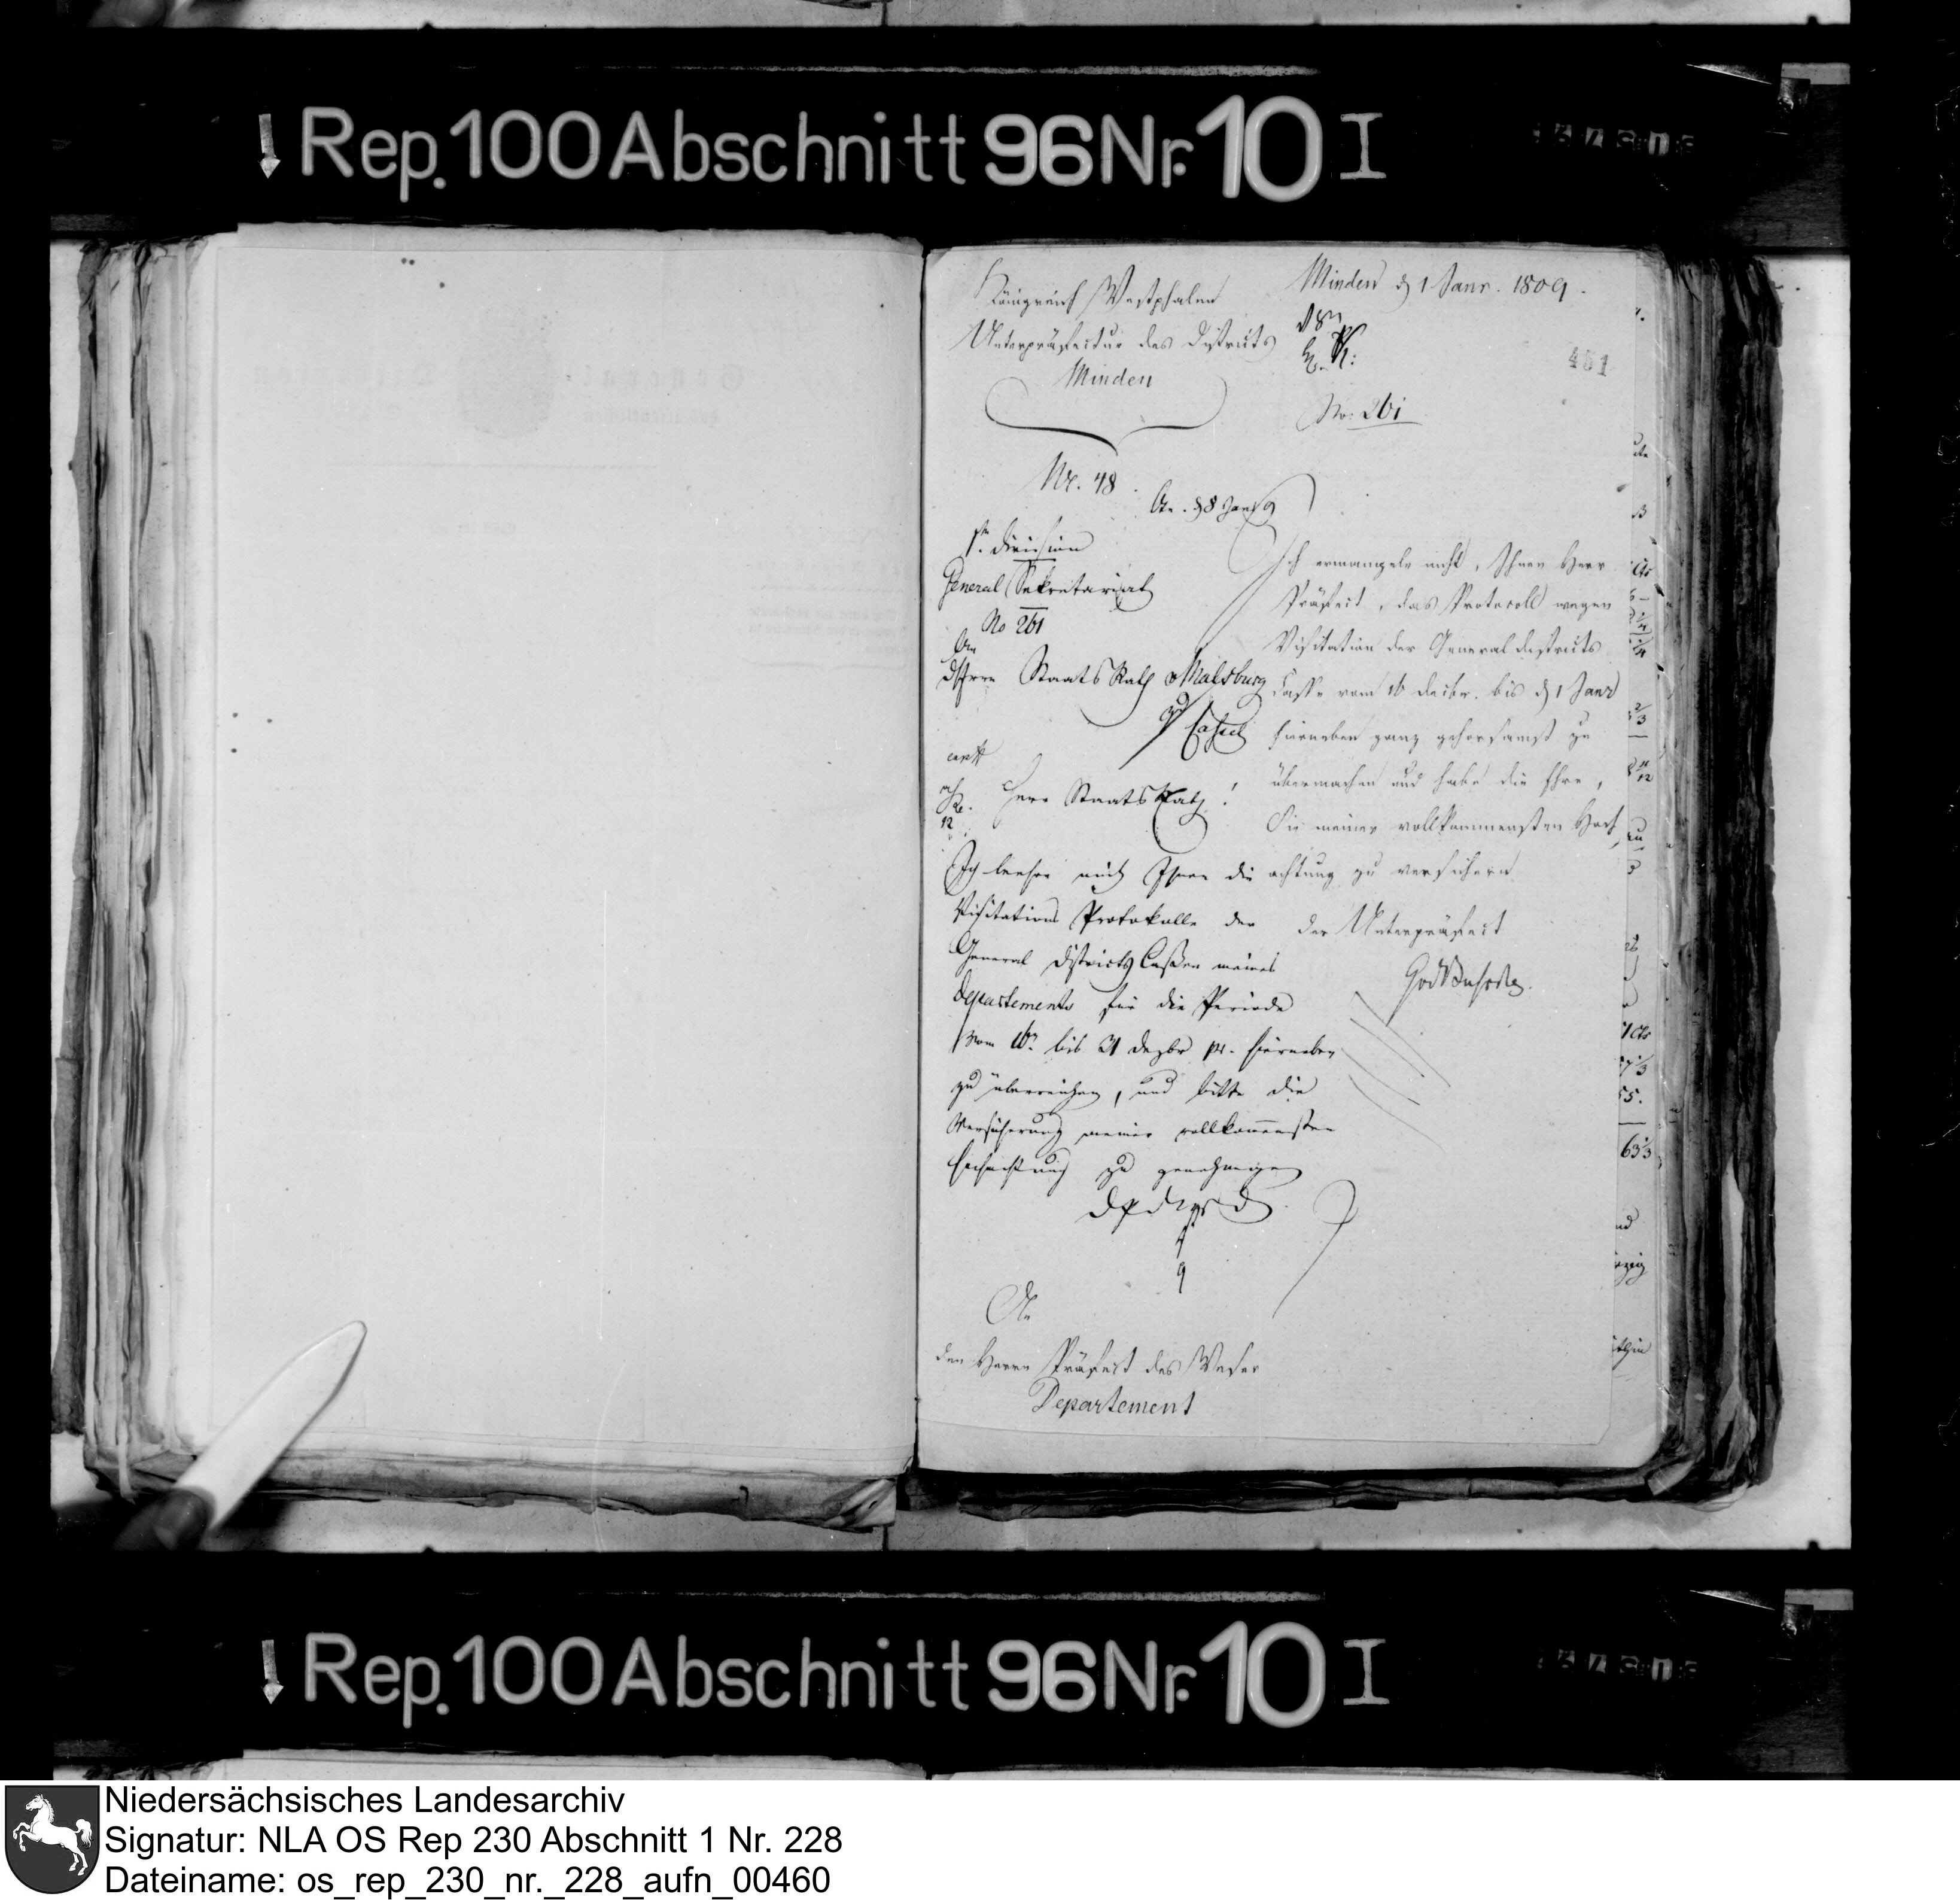 Rep. 100 Abschnitt 96 Nr. 10 I
Königreich Westphalen
Unterpräfectur des Districts
Minden
Minden d 1 Janr. 1809.
451
No: 261
Nr. 48
1te Division
General Sekretariat
No 261
An
d Herrn Staats Rath v Malsburg
Cassel
Herr Staats Rath!
Ich beehre mich Ihnen die
Visitations Protokolle der
General Districts Cassen meines
Departements für die Periode
vom 16n bis 31 Dezbr pr. hierneben
zu überreichen, und bitte die
Versicherung meiner vollkommensten
Hochachtung zu genehmigen
Ich ermangele nicht, Ihnen Herr
Präfect, das Protocoll wegen
Visitation der General Districts
Casse vom 16 Decbr. bis d 1 Janr
hierneben ganz gehorsamst zu
übermachen und habe die Ehre,
Sie meiner vollkommensten Hoch
achtung zu versichern
der Unterpräfect
An
den Herrn Präfect des Weser
Departement
Rep. 100 Abschnitt 96 Nr. 10 I
Niedersächsisches Landesarchiv
Signatur: NLA OS Rep 230 Abschnitt 1 Nr. 228
Dateiname: os_rep_230_nr._228_aufn_00460